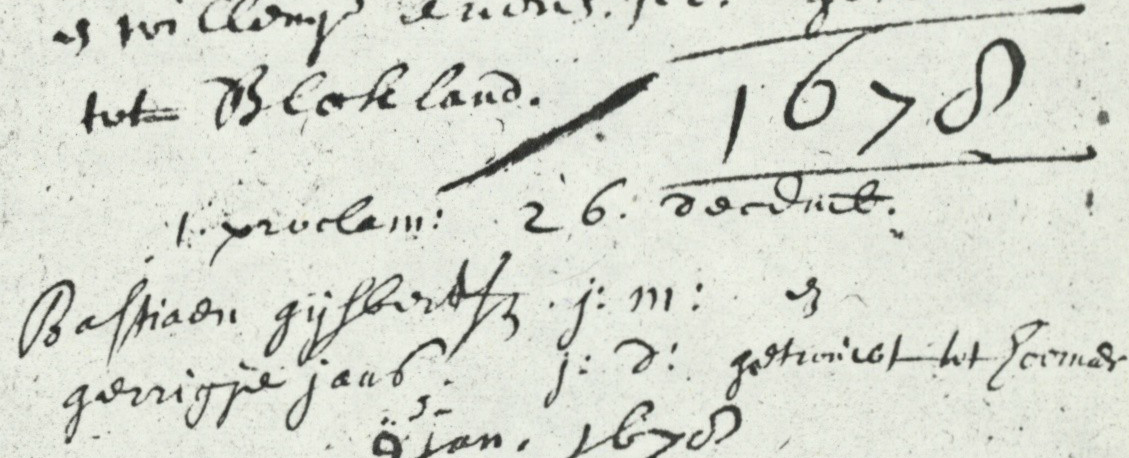 en willempje
tot Blokland. 1678
1. proclam: 26. decemb.
Bastiaen gijsbertsz. j: m: en
gerrigje jans. j: d: getrouwt tot
9 jan. 1678